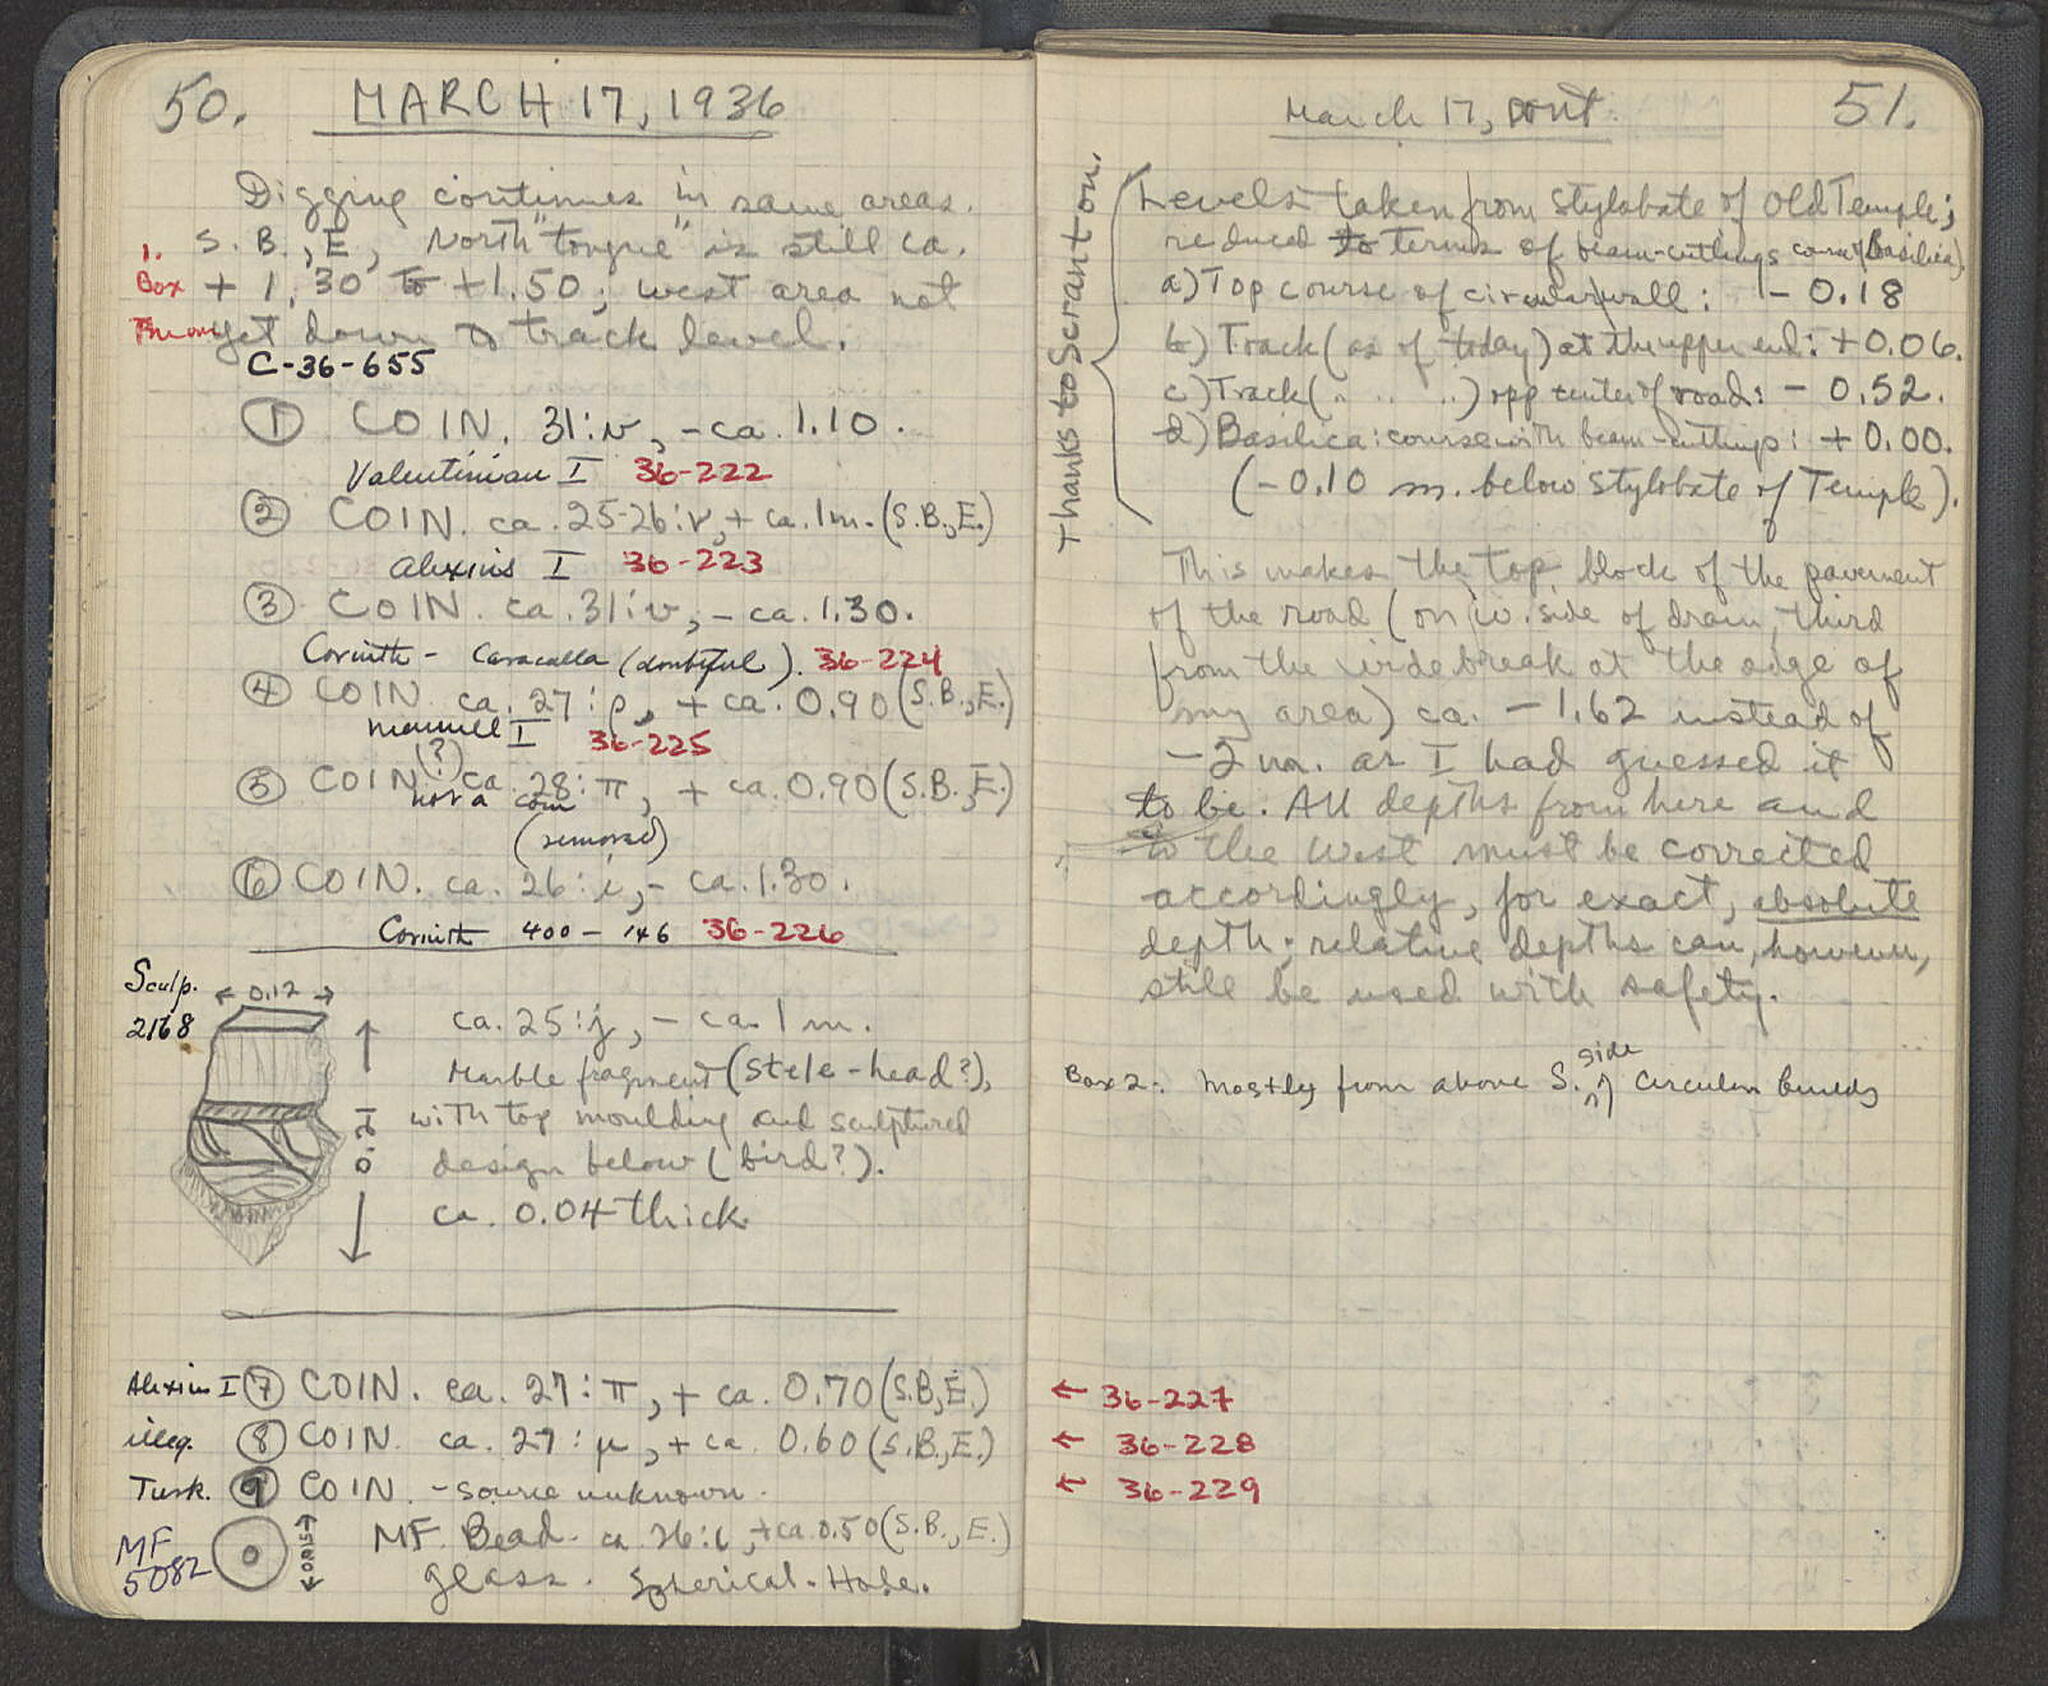 50.
MARCH 17, 1936
Digging continues in same areas.
S. B., E, North "tongue" is still ca.
+ 1.30 to +1.50; west area not
yet down to track level.
1.
Box
From
C-36-655
① COIN. 31:ν, - ca. 1.10.
Valentinian I 36-222
② COIN. ca. 25-26:ν, + ca. 1m. (S.B., E.)
Alexius I 36-223
③ COIN. ca. 31:ν, - ca. 1.30.
Corinth - Caracalla (doubtful). 36-224
④ COIN ca. 27:ρ, + ca. 0.90 (S.B., E.)
Manuel I 36-225
⑤ COIN (?) ca. 28:π, + ca. 0.90 (S.B., E.)
not a coin
(removed)
⑥ COIN. ca. 26:i, - ca. 1.30.
Corinth 400 - 146 36-226
Sculp.
2168
← 0.12 →
← 0.21 →
ca. 25:j, - ca. 1 m.
Marble fragment (stele-head?),
with top moulding and sculptured
design below (bird?).
ca. 0.04 thick
Alexius I ⑦ COIN. ca. 27:π, + ca. 0.70 (S.B., E.)
illeg. ⑧ COIN. ca. 27:μ, + ca. 0.60 (S.B., E.)
Turk. ⑨ COIN. - source unknown.
MF
5082
← 0.015 →
MF. Bead. ca. 26:ι, + ca. 0.50 (S.B., E.)
glass. Spherical. Hole.
March 17, cont.
51.
Thanks to Scranton.
Levels taken from stylobate of Old Temple;
reduced to terms of beam-cuttings course (Basilica).
a) Top course of circular wall: - 0.18
b) Track (as of today) at the upper end: + 0.06.
c) Track ( " " " ) opp center of road: - 0.52.
d) Basilica: course with beam-cuttings: + 0.00.
(-0.10 m. below stylobate of Temple).
This makes the top block of the pavement
of the road (on w. side of drain, third
from the wide break at the edge of
my area) ca. - 1.62 instead of
- 2 m. as I had guessed it
to be. All depths from here and
to the West must be corrected
accordingly, for exact, absolute
depth; relative depths can, however,
still be used with safety.
Box 2: Mostly from above S. side of Circular buildg
← 36-227
← 36-228
← 36-229